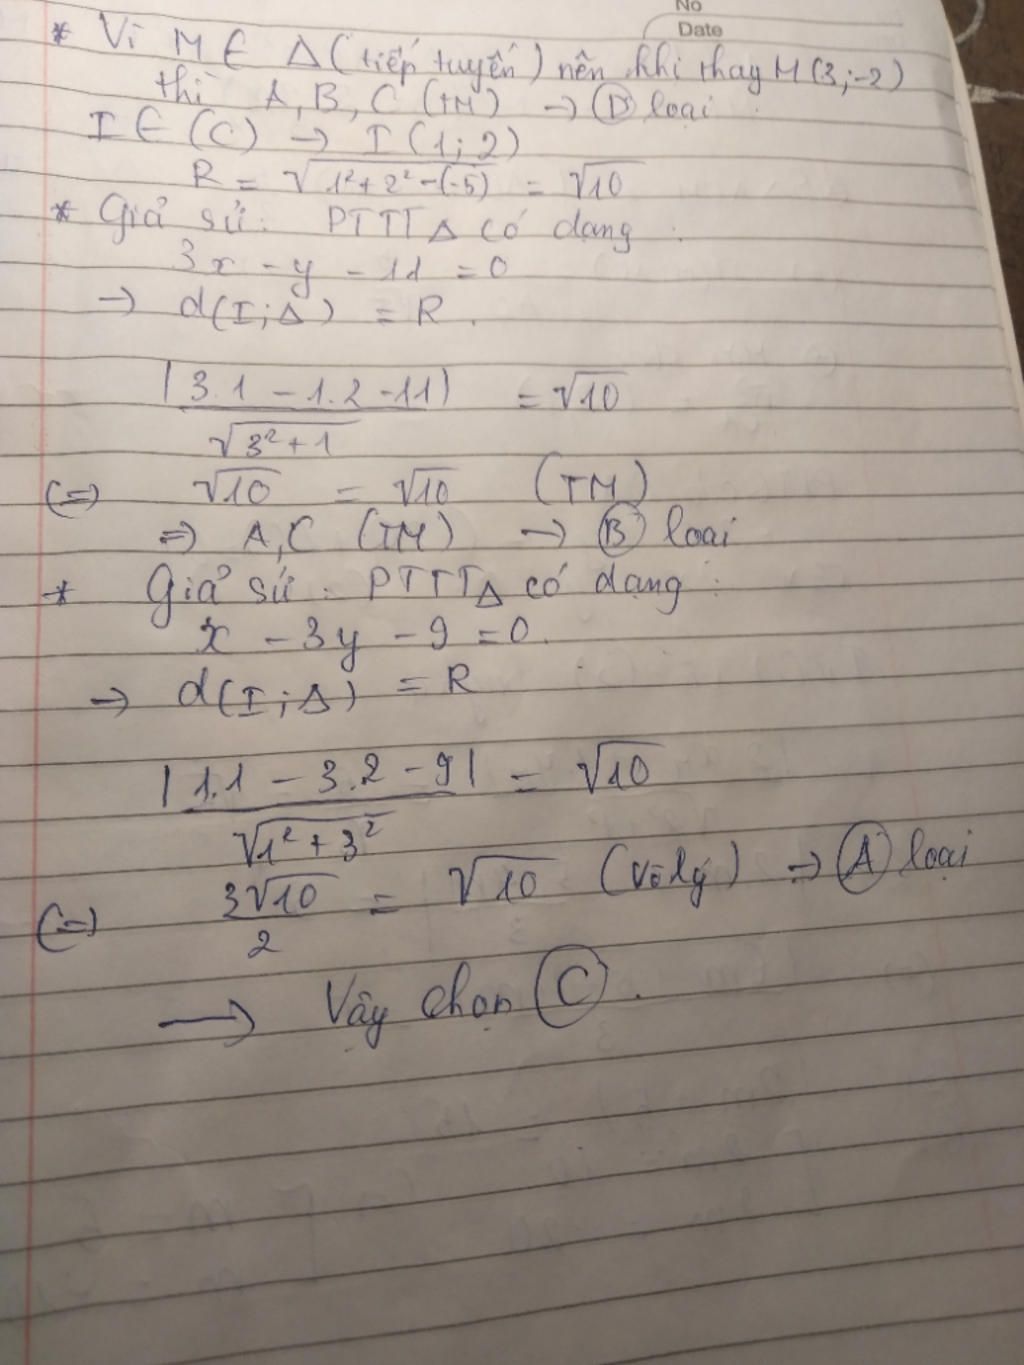 No
Date
* Vì M ∈ Δ (tiếp tuyến) nên khi thay M(3;-2)
thì A, B, C (TM) → Ⓓ loại
I ∈ (C) → I (1; 2)
R = √(1² + 2² - (-5)) = √10
* Giả sử: PTTT Δ có dạng:
3x - y - 11 = 0
→ d(I; Δ) = R.
|3.1 - 1.2 - 11| / √(3² + 1) = √10
(=) √10 = √10 (TM)
=> A, C (TM) → Ⓑ loại
* Giả sử: PTTT Δ có dạng:
x - 3y - 9 = 0.
→ d(I; Δ) = R
|1.1 - 3.2 - 9| / √(1² + 3²) = √10
(=) 3√10 / 2 = √10 (Vô lý) → Ⓐ loại
→ Vậy chọn Ⓒ.